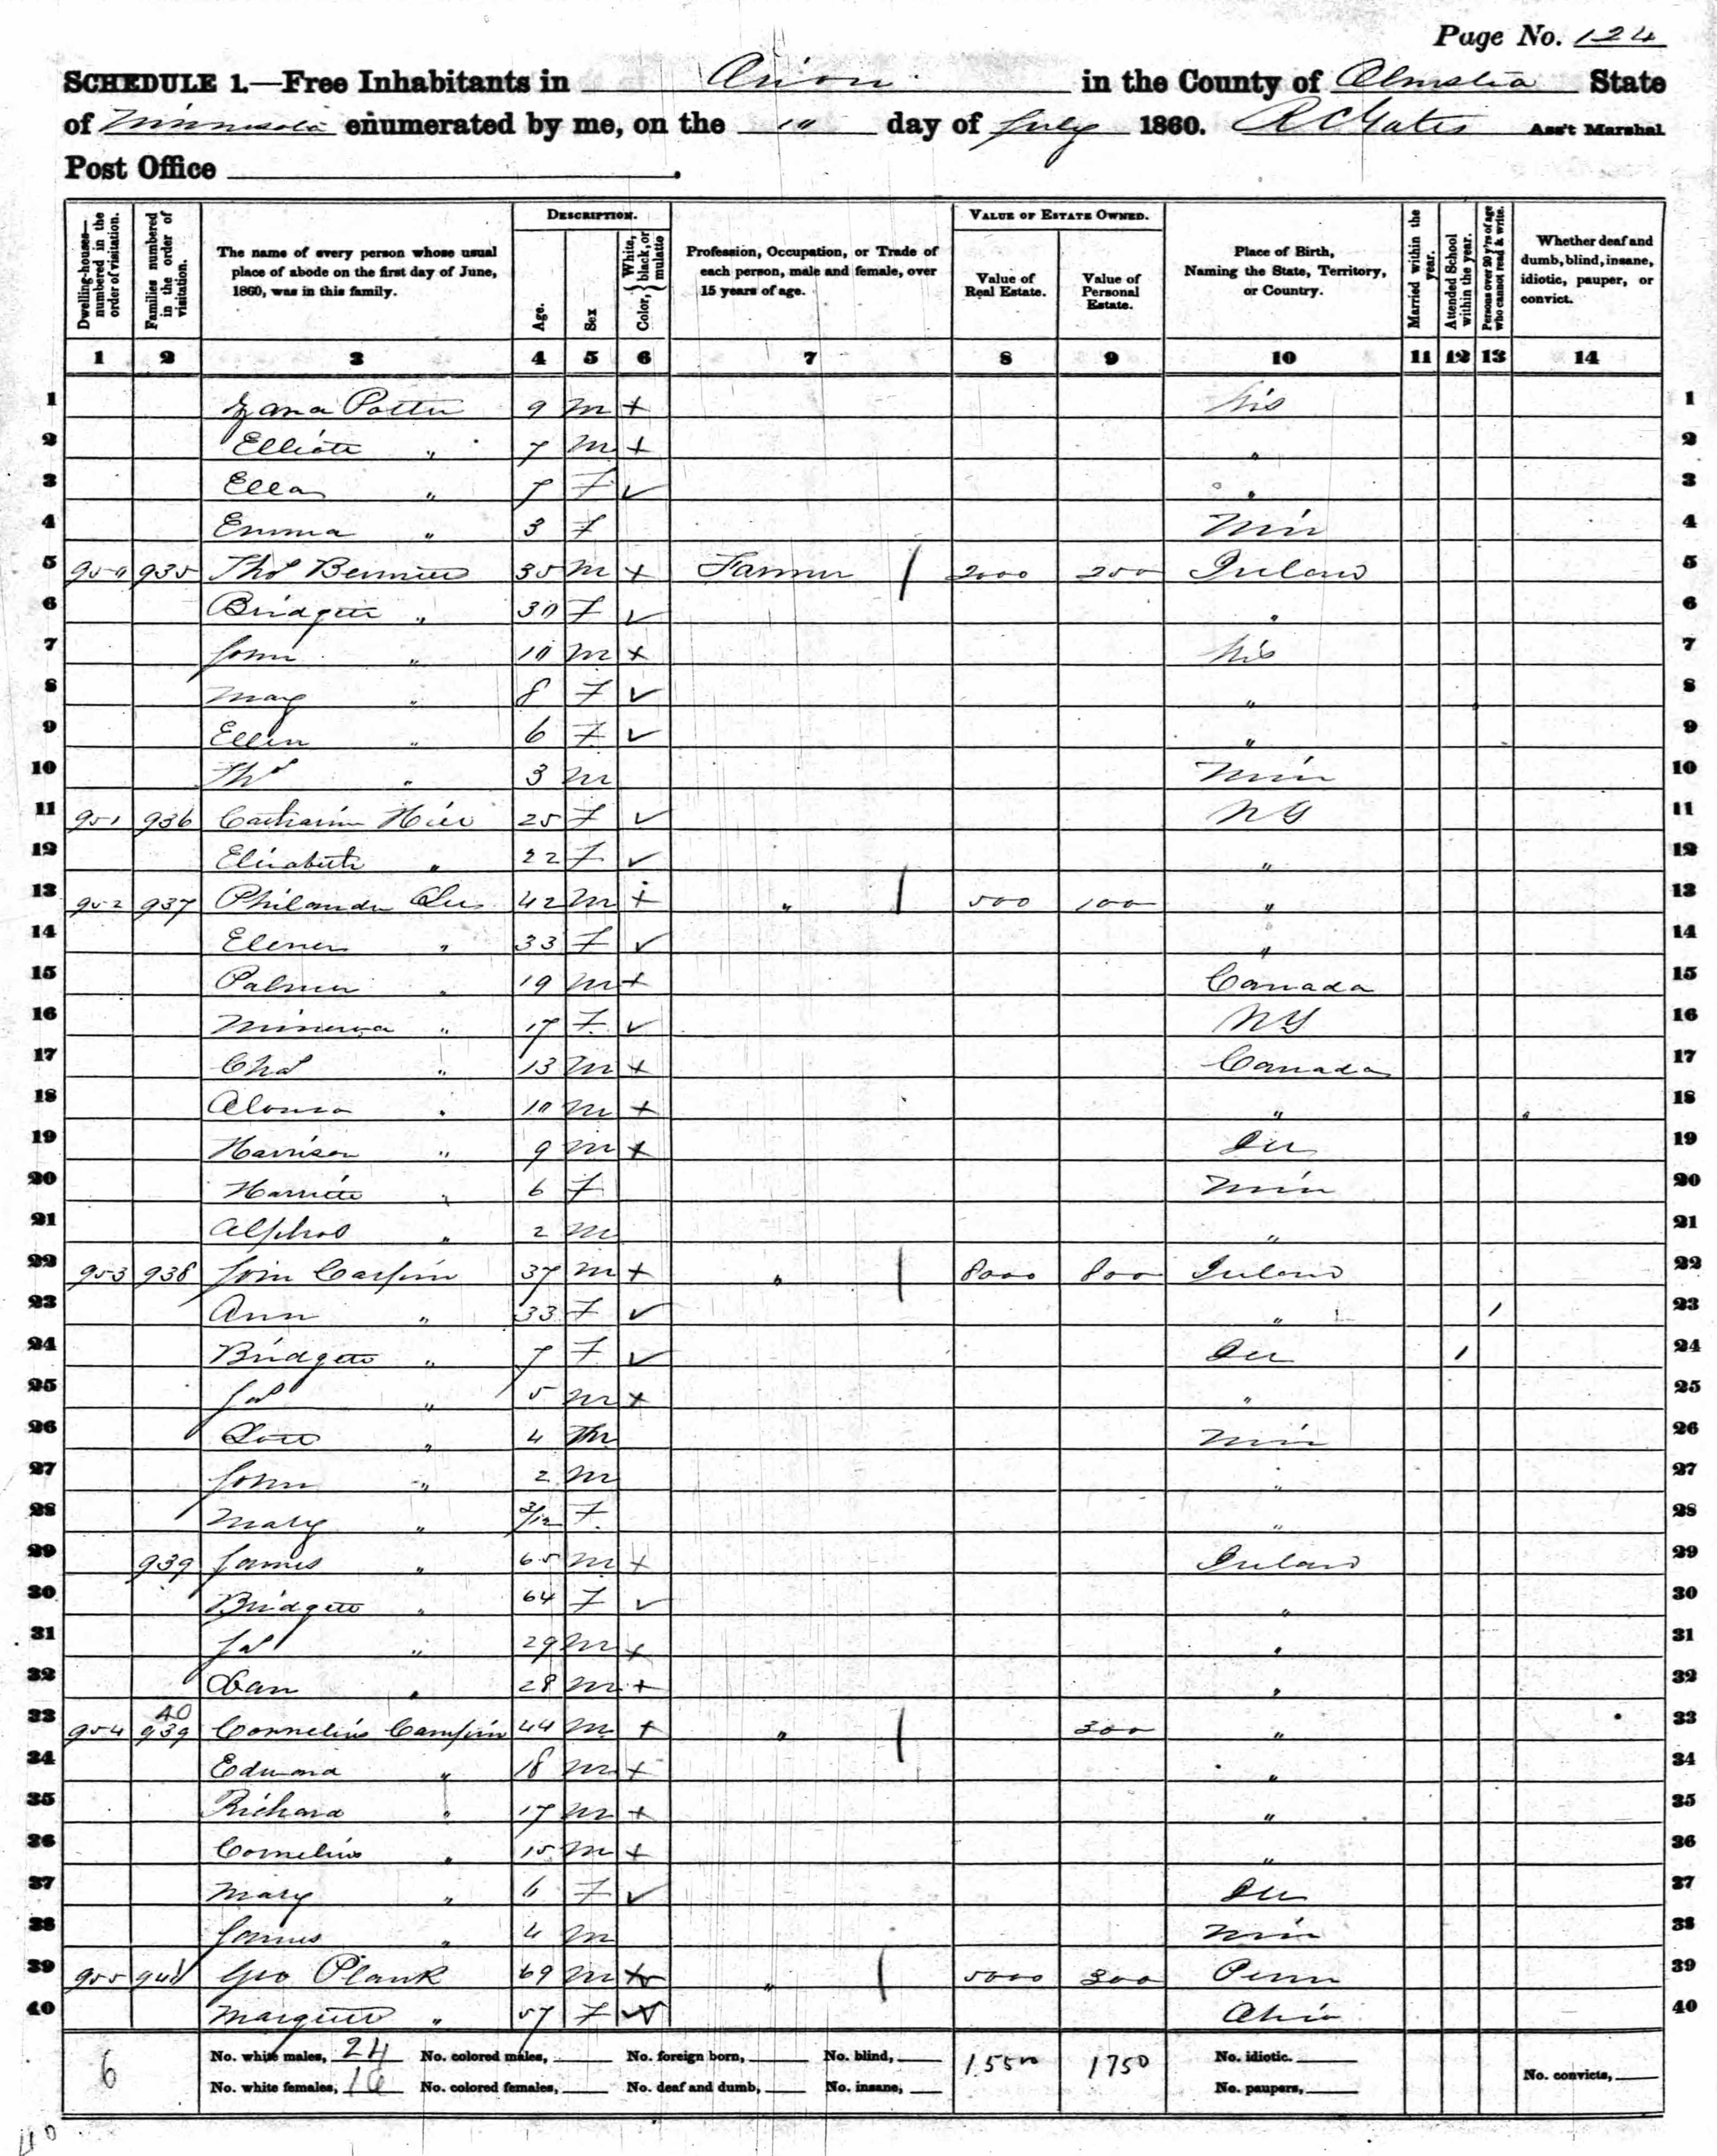 Page No. 124
SCHEDULE 1.—Free Inhabitants in Orion in the County of Olmstead State
of Minnesota enumerated by me, on the 10 day of July 1860. R C Gates Ass't Marshal
Post Office
Dwelling-houses—numbered in the order of visitation. Families numbered in the order of visitation. The name of every person whose usual place of abode on the first day of June, 1860, was in this family. Description. Age. Sex Color, { White, black, or mulatto Profession, Occupation, or Trade of each person, male and female, over 15 years of age. Value of Estate Owned. Value of Real Estate. Value of Personal Estate. Place of Birth, Naming the State, Territory, or Country. Married within the year. Attended School within the year. Persons over 20 y'rs of age who cannot read & write. Whether deaf and dumb, blind, insane, idiotic, pauper, or convict.
1 2 3 4 5 6 7 8 9 10 11 12 13 14
1 Potter 9 M + Wis 1
2 Elliott " 7 M + " 2
3 Ella " 7 F ✓ " 3
4 Emma " 3 F Min 4
5 950 935 Thos 35 M + Farmer / 2000 250 Ireland 5
6 Bridgett " 30 F ✓ " 6
7 John " 10 M + Wis 7
8 Mary " 8 F ✓ " 8
9 Ellen " 6 F ✓ " 9
10 Thos " 3 M Min 10
11 951 936 Catharine 25 F ✓ NY 11
12 Elizabeth " 22 F ✓ " 12
13 952 937 Philander 42 M + " / 500 100 " 13
14 " 33 F ✓ " 14
15 Palmer " 19 M + Canada 15
16 Minerva " 17 F ✓ NY 16
17 Chs " 13 M + Canada 17
18 Alonzo " 10 M + " 18
19 Harrison " 9 M + Ill 19
20 Harriett " 6 F Min 20
21 " 2 M " 21
22 953 938 John 37 M + " / 8000 800 Ireland 22
23 Ann " 33 F ✓ " / 23
24 Bridgett " 7 F ✓ Ill / 24
25 Jas " 5 M + " 25
26 " 4 M Min 26
27 John " 2 M " 27
28 Mary " 3/12 F " 28
29 939 James " 65 M + Ireland 29
30 Bridgett " 64 F ✓ " 30
31 Jas " 29 M + " 31
32 Dan " 28 M + " 32
33 954 939 40 Cornelius 44 M + " / 300 " 33
34 Edward " 18 M + " 34
35 Richard " 17 M + " 35
36 Cornelius " 15 M + " 36
37 Mary " 6 F ✓ Ill 37
38 James " 4 M Min 38
39 955 941 Geo Plank 69 M + " / 5000 300 Penn 39
40 Margrett " 57 F ✓ Ohio 40
6 No. white males, 24 No. colored males, No. foreign born, No. blind, 15500 1750 No. idiotic.
No. white females, 16 No. colored females, No. deaf and dumb, No. insane, No. paupers, No. convicts,
40